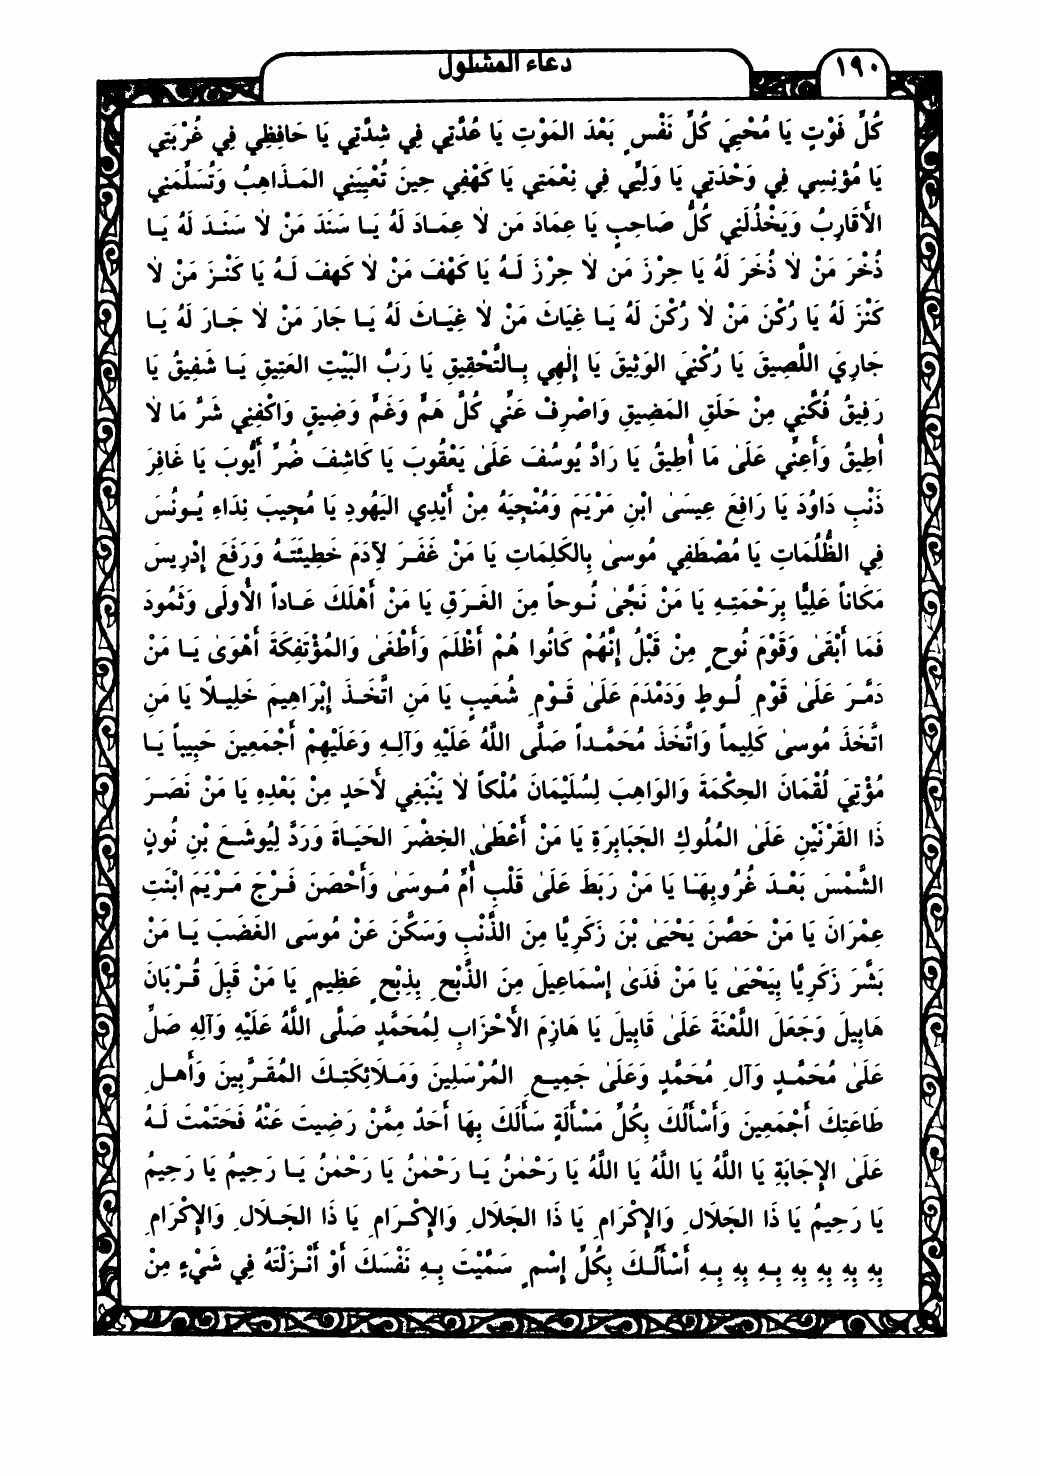 ١٩٠
دعاء المشلول
كُلِّ فَوْتٍ يَا مُحْيِيَ كُلِّ نَفْسٍ بَعْدَ المَوْتِ يَا عُدَّتِي فِي شِدَّتِي يَا حَافِظِي فِي غُرْبَتِي
يَا مُؤنِسِي فِي وَحْدَتِي يَا وَلِيِّي فِي نِعْمَتِي يَا كَهْفِي حِينَ تُعْيِينِي المَذَاهِبُ وَتُسَلِّمُنِي
الأَقَارِبُ وَيَخْذُلُنِي كُلُّ صَاحِبٍ يَا عِمَادَ مَن لاَ عِمَادَ لَهُ يَا سَنَدَ مَنْ لاَ سَنَدَ لَهُ يَا
ذُخْرَ مَنْ لاَ ذُخَرَ لَهُ يَا حِرْزَ مَن لاَ حِرْزَ لَهُ يَا كَهْفَ مَنْ لاَ كَهفَ لَهُ يَا كَنْزَ مَنْ لاَ
كَنْزَ لَهُ يَا رُكْنَ مَنْ لاَ رُكْنَ لَهُ يَا غِيَاثَ مَنْ لاَ غِيَاثَ لَهُ يَا جَارَ مَنْ لاَ جَارَ لَهُ يَا
جَارِيَ اللَّصِيقَ يَا رُكْنِيَ الوَثِيقَ يَا إِلٰهِي بِالتَّحْقِيقِ يَا رَبَّ البَيْتِ العَتِيقِ يَا شَفِيقُ يَا
رَفِيقُ فُكَّنِي مِنْ حَلَقِ المَضِيقِ وَاصْرِفْ عَنِّي كُلَّ هَمٍّ وَغَمٍّ وَضِيقٍ وَاكْفِنِي شَرَّ مَا لاَ
أُطِيقُ وَأَعِنِّي عَلَىٰ مَا أُطِيقُ يَا رَادَّ يُوسُفَ عَلَىٰ يَعْقُوبَ يَا كَاشِفَ ضُرِّ أَيُّوبَ يَا غَافِرَ
ذَنْبِ دَاوُدَ يَا رَافِعَ عِيسَىٰ ابْنِ مَرْيَمَ وَمُنْجِيَهُ مِنْ أَيْدِي اليَهُودِ يَا مُجِيبَ نِدَاءِ يُونُسَ
فِي الظُّلُمَاتِ يَا مُصْطَفِي مُوسىٰ بِالكَلِمَاتِ يَا مَنْ غَفَرَ لِآدَمَ خَطِيئَتَهُ وَرَفَعَ إِدْرِيسَ
مَكَاناً عَلِيًّا بِرَحْمَتِهِ يَا مَنْ نَجَّىٰ نُوحاً مِنَ الغَرَقِ يَا مَنْ أَهْلَكَ عَاداً الأُولَى وَثَمُودَ
فَمَا أَبْقَىٰ وَقَوْمَ نُوحٍ مِنْ قَبْلُ إِنَّهُمْ كَانُوا هُمْ أَظْلَمَ وَأَطْغَىٰ وَالمُؤْتَفِكَةَ أَهْوَىٰ يَا مَنْ
دَمَّرَ عَلَىٰ قَوْمِ لُوطٍ وَدَمْدَمَ عَلَىٰ قَوْمِ شُعَيبٍ يَا مَنِ اتَّخَذَ إِبْرَاهِيمَ خَلِيلاً يَا مَنِ
اتَّخَذَ مُوسىٰ كَلِيماً وَاتَّخَذَ مُحَمَّداً صَلَّى اللَّهُ عَلَيْهِ وَآلِهِ وَعَلَيْهِمْ أَجْمَعِينَ حَبِيباً يَا
مُؤْتِيَ لُقْمَانَ الحِكْمَةَ وَالوَاهِبَ لِسُلَيْمَانَ مُلْكاً لاَ يَنْبَغِي لأَحَدٍ مِنْ بَعْدِهِ يَا مَنْ نَصَرَ
ذَا القَرْنَيْنِ عَلَىٰ المُلُوكِ الجَبَابِرَةِ يَا مَنْ أَعْطَىٰ الخِضْرَ الحَيَاةَ وَرَدَّ لِيُوشَعَ بْنِ نُونٍ
الشَّمْسَ بَعْدَ غُرُوبِهَا يَا مَنْ رَبَطَ عَلَىٰ قَلْبِ أُمِّ مُوسَىٰ وَأَحْصَنَ فَرْجَ مَرْيَمَ ابْنَتِ
عِمْرَانَ يَا مَنْ حَصَّنَ يَحْيَىٰ بْنَ زَكَرِيَّا مِنَ الذَّنْبِ وَسَكَّنَ عَنْ مُوسَى الغَضَبَ يَا مَنْ
بَشَّرَ زَكَرِيَّا بِيَحْيَىٰ يَا مَنْ فَدَىٰ إِسْمَاعِيلَ مِنَ الذَّبْحِ بِذِبْحٍ عَظِيمٍ يَا مَنْ قَبِلَ قُرْبَانَ
هَابِيلَ وَجَعَلَ اللَّعْنَةَ عَلَىٰ قَابِيلَ يَا هَازِمَ الأَحْزَابِ لِمُحَمَّدٍ صَلَّى اللَّهُ عَلَيْهِ وَآلِهِ صَلِّ
عَلَىٰ مُحَمَّدٍ وَآلِ مُحَمَّدٍ وَعَلَىٰ جَمِيعِ المُرْسَلِينَ وَمَلاَئِكَتِكَ المُقَرَّبِينَ وَأَهلِ
طَاعَتِكَ أَجْمَعِينَ وَأَسْأَلُكَ بِكُلِّ مَسْأَلَةٍ سَأَلَكَ بِهَا أَحَدٌ مِمَّنْ رَضِيتَ عَنْهُ فَحَتَمْتَ لَهُ
عَلَىٰ الإِجَابَةِ يَا اللَّهُ يَا اللَّهُ يَا اللَّهُ يَا رَحْمٰنُ يَا رَحْمٰنُ يَا رَحْمٰنُ يَا رَحِيمُ يَا رَحِيمُ
يَا رَحِيمُ يَا ذَا الجَلاَلِ وَالإِكْرَامِ يَا ذَا الجَلاَلِ وَالإِكْرَامِ يَا ذَا الجَلاَلِ وَالإِكْرَامِ
بِهِ بِهِ بِهِ بِهِ بِهِ بِهِ بِهِ أَسْأَلُكَ بِكُلِّ إِسْمٍ سَمَّيْتَ بِهِ نَفْسَكَ أَوْ أَنْزَلْتَهُ فِي شَيْءٍ مِنْ